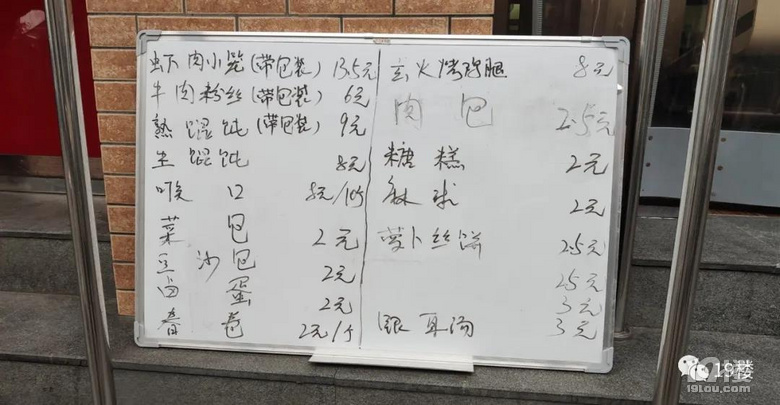 虾肉小笼(带包装) 13.5元
牛肉粉丝(带包装) 6元
熟馄饨(带包装) 9元
生馄饨 8元
喉口 8元/10个
菜包 2元
豆沙包 2元
卤蛋 2元
春卷 2元/个
玄火烤鸡腿 8元
肉包 2.5元
糖糕 2元
麻球 2元
萝卜丝饼 2.5元
2.5元
3元
银耳汤 3元
19楼
19lou.com